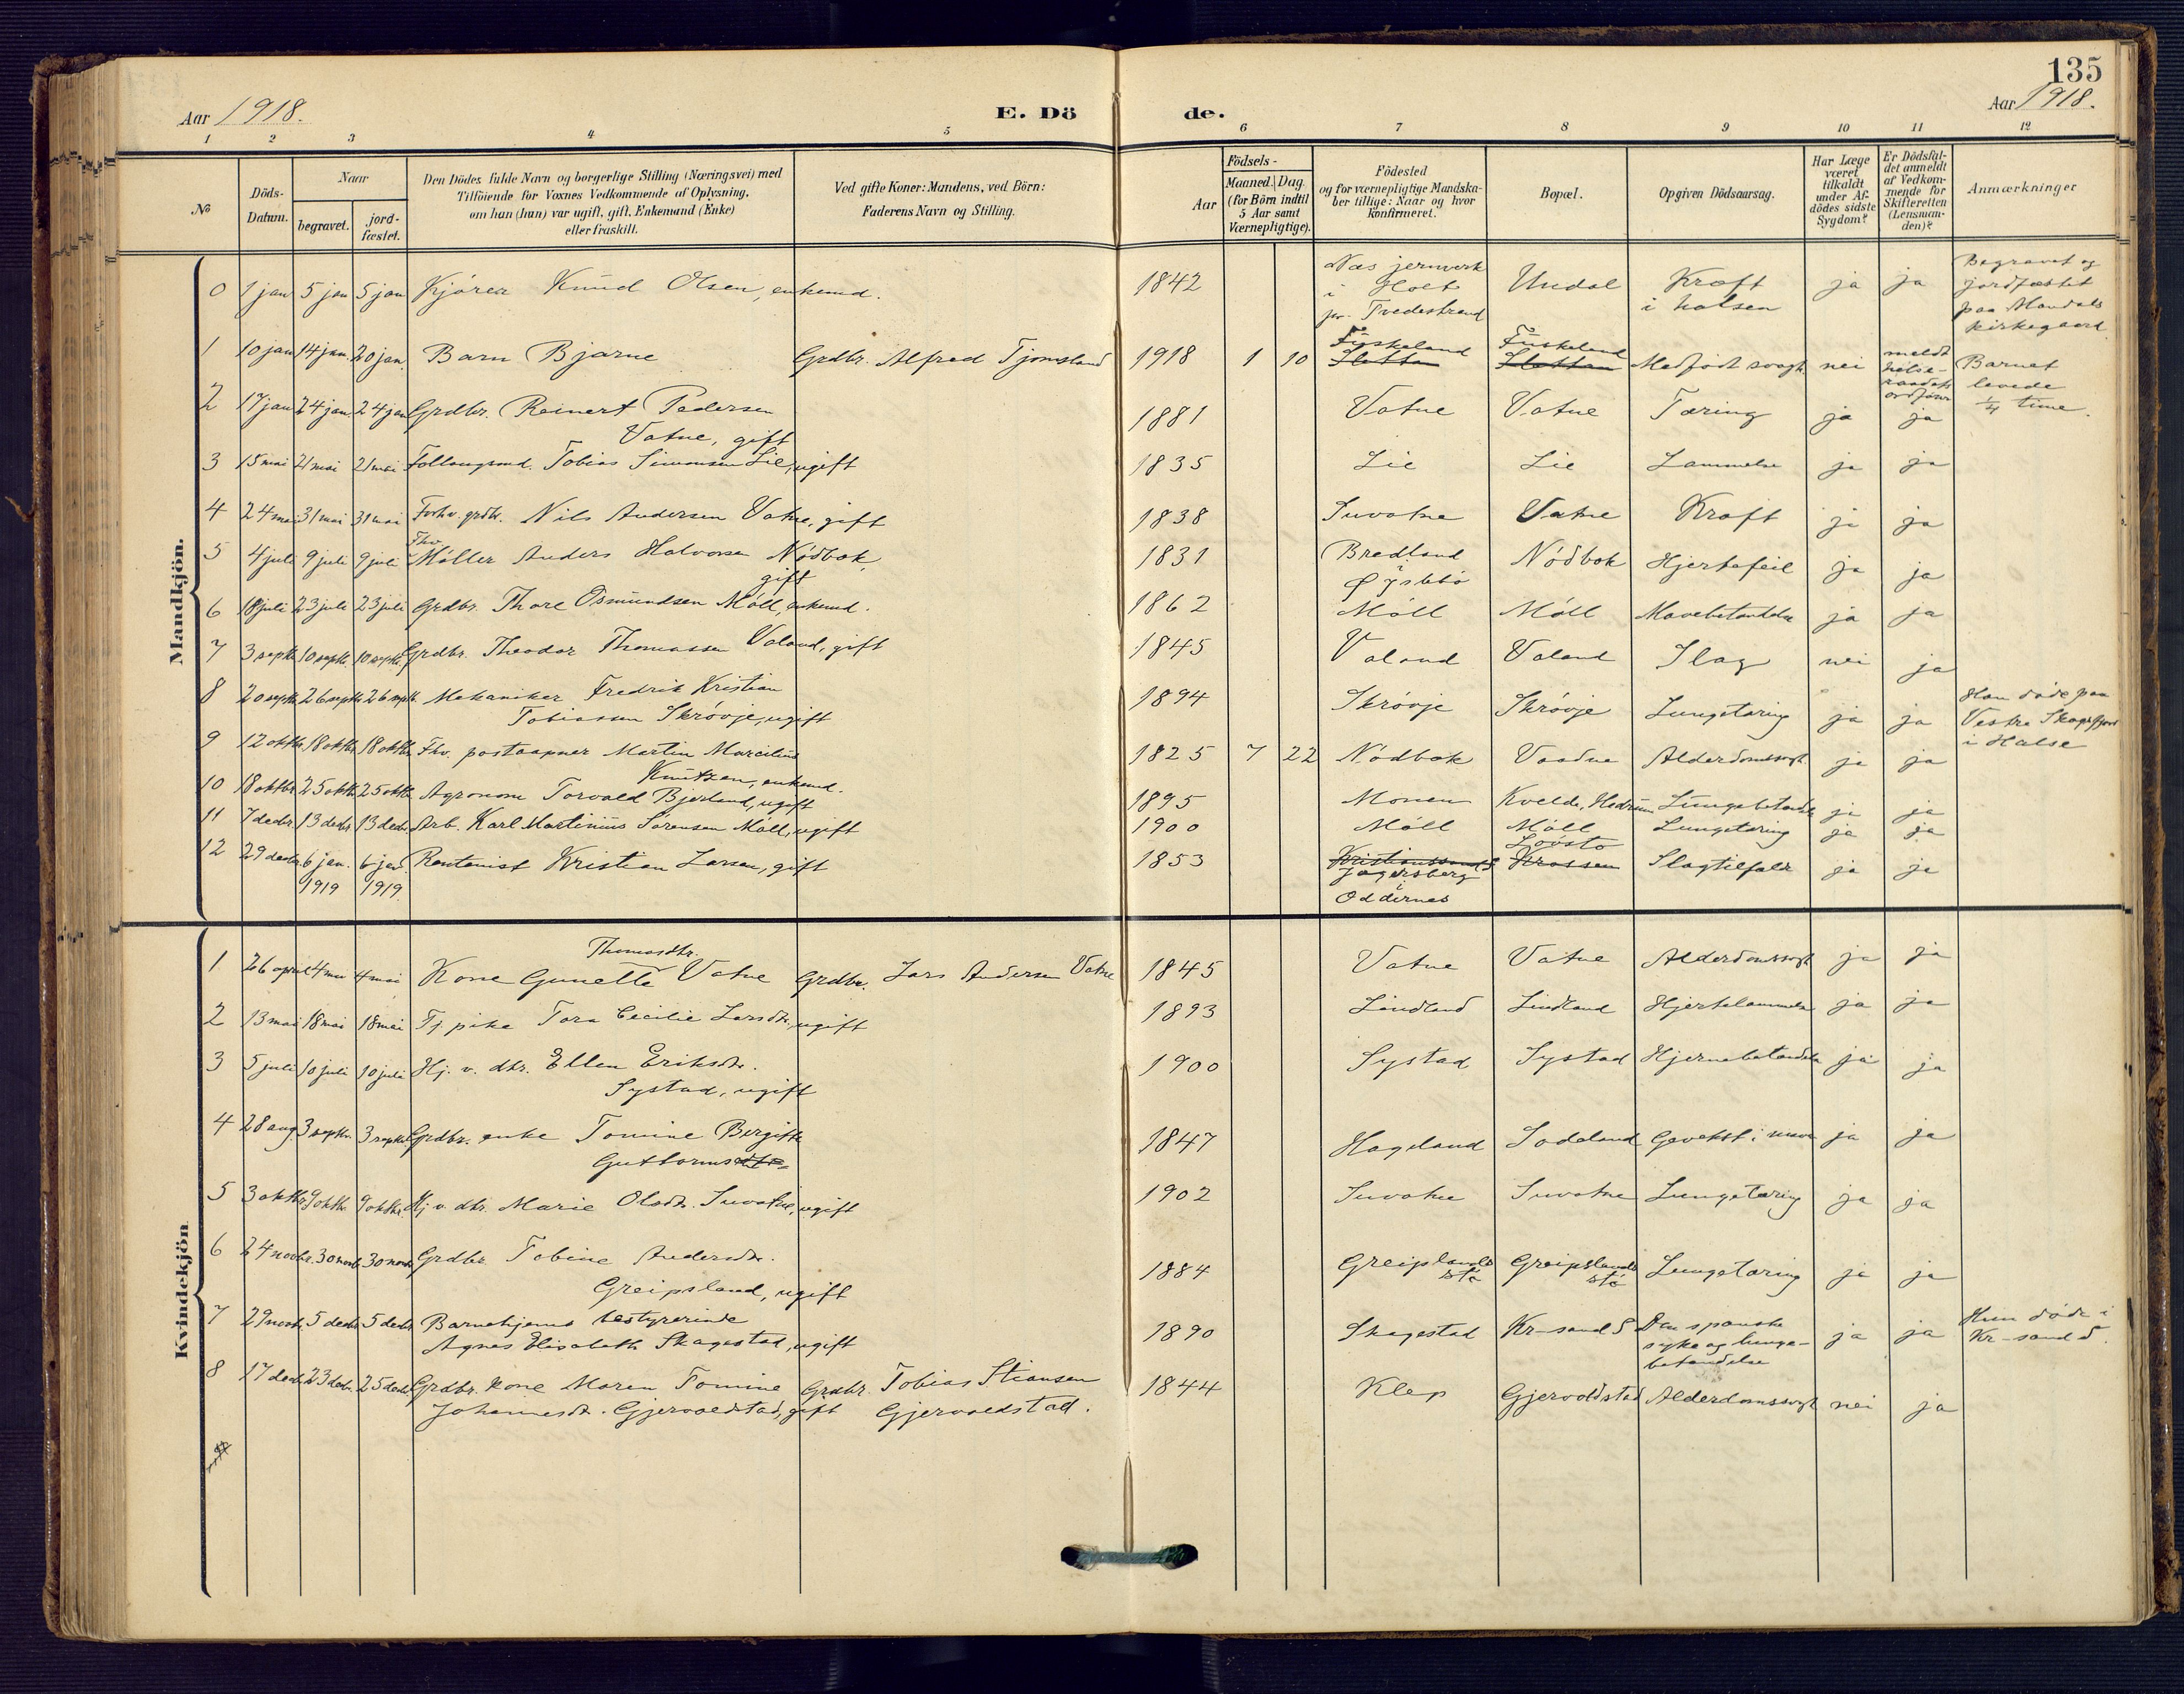 135
Aar 1918.
E. Dö
de.
Aar 1918.
1 2 3 4 5 6 7 8 9 10 11 12
No
Döds-Datum.
Naar
begravet.
jord-fæstet.
Den Dödes fulde Navn og borgerlige Stilling (Næringsvei) med
Tilföiende for Voxnes Vedkommende af Oplysning,
om han (hun) var ugift, gift, Enkemand (Enke)
eller fraskilt.
Ved gifte Koner: Mandens, ved Börn:
Faderens Navn og Stilling.
Aar
Födsels-
Maaned. Dag.
(for Börn indtil
5 Aar samt
Værnepligtige).
Födested
og for værnepligtige Mandska-
ber tillige: Naar og hvor
konfirmeret.
Bopæl.
Opgiven Dödsaarsag.
Har Læge
været
tilkaldt
under Af-
dödes sidste
Sygdom?
Er Dödsfal-
det anmeldt
af Vedkom-
mende for
Skifteretten
(Lensman-
den)?
Anmærkninger
Mandkjön.
0 1 jan 5 jan 5 jan Kjörer Knud Olsen, enkemd. 1842 Næs jernverk i Holt pr. Tvedestrand Undal Kræft i halsen ja ja Begravet og jordfæstet paa Mandals kirkegaard
1 10 jan 14 jan. 20 jan. Barn Bjarne Grdbr. Alfred Tjomsland 1918 1 10 Fuskeland Sletten Fuskeland Sletten Medfödt svagh. nei meldt helse-raadets ordförer Barnet levede 1/4 time.
2 17 jan 24 jan. 24 jan Grdbr. Reinert Pedersen
Vatne, gift 1881 Vatne Vatne Tæring ja ja
3 15 mai 21 mai 21 mai Tobias Simonsen Lie, ugift 1835 Lie Lie Lammelse ja ja
4 24 mai 31 mai 31 mai Forhv. grdbr. Nils Andersen Vatne, gift 1838 Suvatne Vatne Kræft ja ja
5 4 juli 9 juli 9 juli Fhv. Möller Anders Halvorsen Nödbok,
gift 1831 Bredland i Øyslebö Nödbok Hjertefeil ja ja
6 18 juli 23 juli 23 juli Grdbr. Thore Osmundsen Möll, enkemd. 1862 Möll Möll Mavebetændelse ja ja
7 3 septbr 10 septbr. 10 septbr. Grdbr. Theodor Thomassen Valand, gift 1845 Valand Valand Slag nei ja
8 20 septbr 26 septbr 26 septbr. Mekaniker Fredrik Kristian
Tobiassen Skrövje, ugift 1894 Skrövje Skrövje Lungetæring ja ja Han döde paa Vestre Skogsfjord i Halse
9 12 oktbr 18 oktbr. 18 oktbr. Fhv. postaapner Martin Marcilius
Knutzen, enkemd. 1825 7 22 Nödbok Vaadne Alderdomssvagh. ja ja
10 18 oktbr 25 oktbr 25 oktbr Agronom Torvald Bjerland, ugift 1895 Monen Kvelde, Hedrum Lungebetændelse ja ja
11 7 decbr. 13 decbr 13 decbr. Arb. Karl Martinius Sörensen Möll, ugift 1900 Möll Möll Lungetæring ja ja
12 29 decbr. 6 jan. 1919 6 jan. 1919. Rentenist Kristian Larsen, gift 1853 Kristianssand S Jægersberg i Oddernes Lövstö Krossen Slagtilfælde ja ja
Kvindekjön
1 26 april 4 mai 4 mai Kone Gunelle Thomasdtr. Vatne Grdbr. Lars Andersen Vatne 1845 Vatne Vatne Alderdomssvagh ja ja
2 13 mai 18 mai 18 mai Tj. pike Tora Cecilie Larsdtr., ugift 1893 Lindland Lindland Hjertelammelse ja ja
3 5 juli 10 juli 10 juli Hj. v. dtr. Ellen Eriksdtr.
Systad, ugift 1900 Systad Systad Hjernebetændelse ja ja
4 28 aug 3 septbr. 3 septbr Grdbr. enke Tomine Bergitte
Guttormsdtr 1847 Hageland Sodeland Gevekst i maven ja ja
5 3 oktbr. 9 oktbr. 9 oktbr. Hj. v. dtr. Marie Olsdtr. Suvatne, ugift 1902 Suvatne Suvatne Lungetæring ja ja
6 24 novbr. 30 novbr. 30 novbr Grdbr Tobine Andersdtr.
Greipsland, ugift 1884 Greipslands stö Greipslands stö Lungetæring ja ja
7 29 novbr. 5 decbr. 5 decbr. Barnehjems bestyrerinde
Agnes Elisabeth Skagestad, ugift 1890 Skagestad Kr-sand S Den spanske syke og lunge-betændelse ja ja Hun döde i Kr-sand S.
8 17 decbr. 23 decbr. 25 decbr. Grdbr. kone Maren Tomine
Johannesdtr. Gjervoldstad, gift Grdbr. Tobias Stiansen Gjervoldstad. 1844 Klep Gjervoldstad Alderdomssvagh nei ja